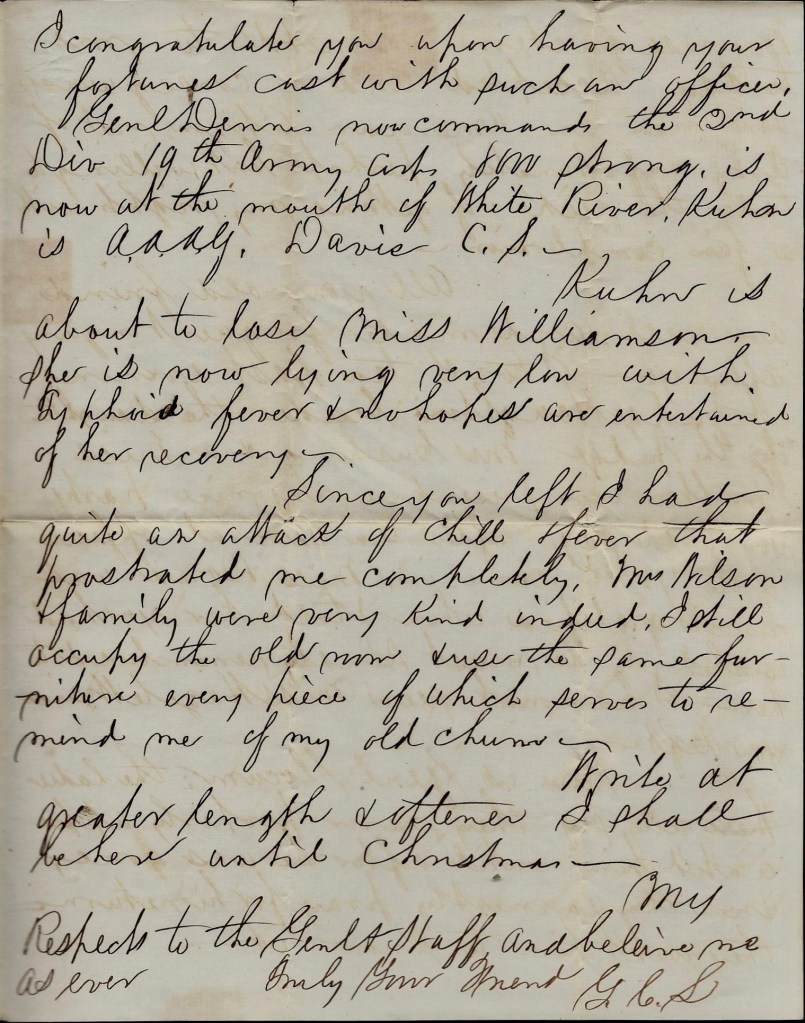 I congratulate you upon having your
fortunes cast with such an officer.
Genl Dennis now commands the 2nd
Div 19th Army Corps 8000 strong, is
now at the mouth of White River. Kuhn
is A.A.A.G. Davis C.S. —
Kuhn is
about to lose Miss Williamson —
she is now lying very low with
Typhoid fever & no hopes are entertained
of her recovery —
Since you left I had
quite an attack of chill & fever that
prostrated me completely, Mrs Wilson
& family were very kind indeed, I still
occupy the old room & use the same fur-
niture every piece of which serves to re-
mind me of my old chum —
Write at
greater length & oftener I shall
be here until Christmas —
My
Respects to the Genl & Staff and beleive me
as ever Truly Your Friend G. C. S